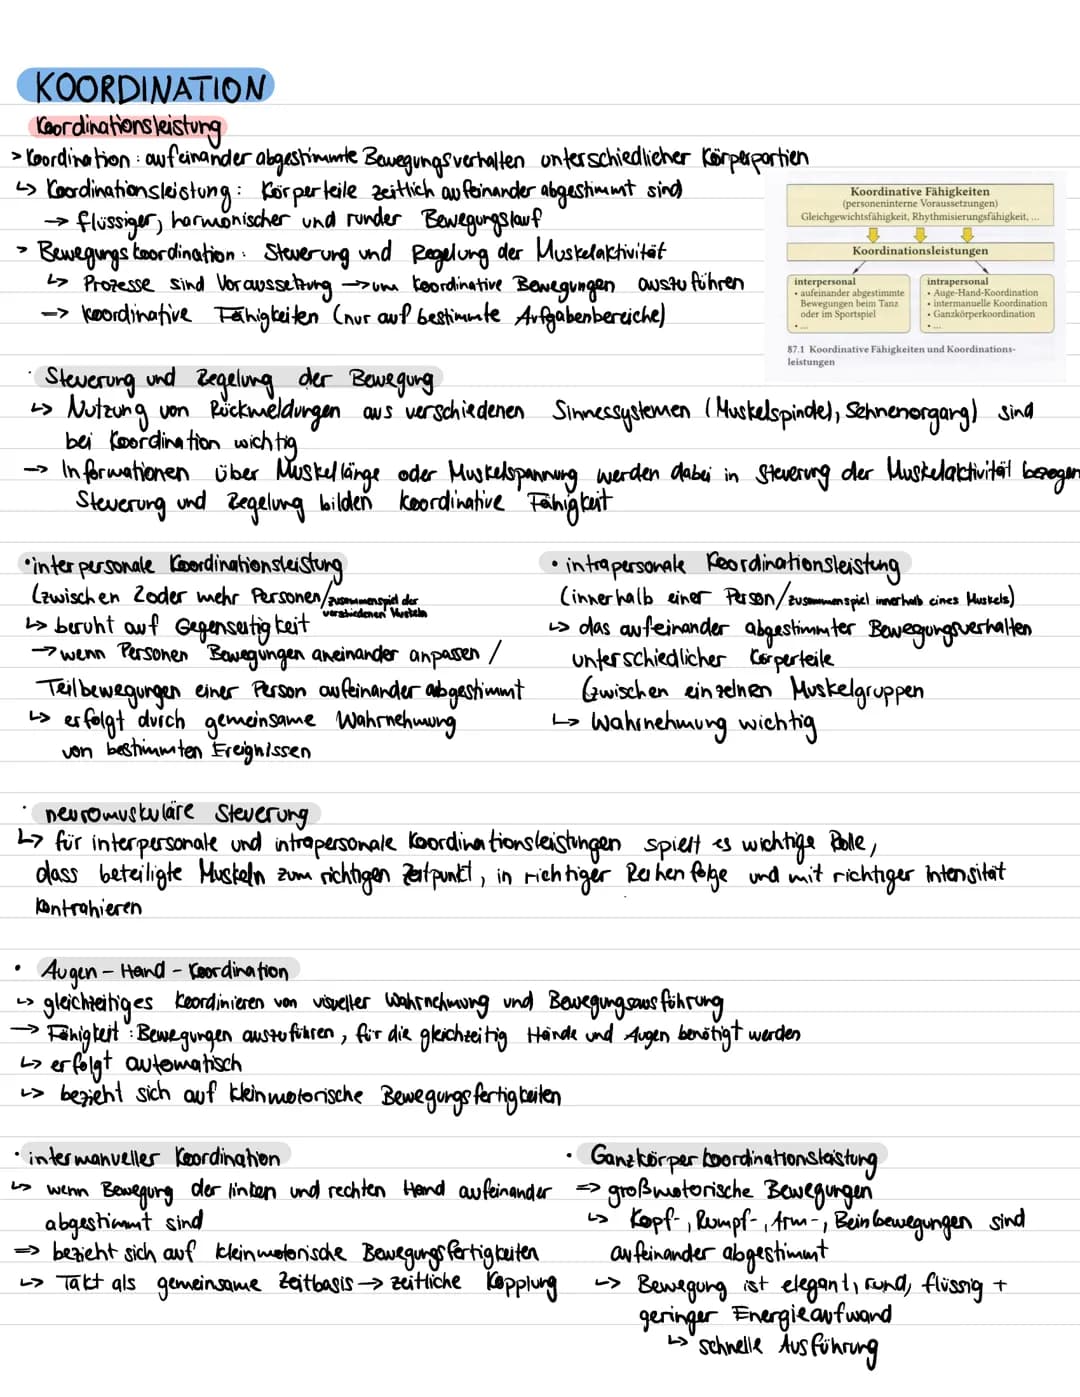 KOORDINATION
Koordinationsleistung
> Koordination: aufeinander abgestimmte Bewegungsverhalten unterschiedlicher Körperpartien
↳ Koordinationsleistung: Körperteile zeitlich aufeinander abgestimmt sind
→ flüssiger, harmonischer und runder Bewegungslauf
> Bewegungskoordination: Steuerung und Regelung der Muskelaktivität
↳ Prozesse sind Voraussetzung → um koordinative Bewegungen auszuführen
→ koordinative Fähigkeiten (nur auf bestimmte Aufgabenbereiche)
Koordinative Fähigkeiten
(personeninterne Voraussetzungen)
Gleichgewichtsfähigkeit, Rhythmisierungsfähigkeit, ...
Koordinationsleistungen
interpersonal
• aufeinander abgestimmte
Bewegungen beim Tanz
oder im Sportspiel
• ...
intrapersonal
• Auge-Hand-Koordination
• intermanuelle Koordination
• Ganzkörperkoordination
• ...
87.1 Koordinative Fähigkeiten und Koordinations-
leistungen
· Steuerung und Regelung der Bewegung
↳ Nutzung von Rückmeldungen aus verschiedenen Sinnessystemen (Muskelspindel, Sehnenorgang) sind
bei Koordination wichtig
→ Informationen über Muskellänge oder Muskelspannung werden dabei in Steuerung der Muskelaktivität bezogen
Steuerung und Regelung bilden koordinative Fähigkeit
• interpersonale Koordinationsleistung
(zwischen 2 oder mehr Personen/zusammenspiel der
verschiedenen Muskeln
↳ beruht auf Gegenseitigkeit
→ wenn Personen Bewegungen aneinander anpassen /
Teilbewegungen einer Person aufeinander abgestimmt
↳ erfolgt durch gemeinsame Wahrnehmung
von bestimmten Ereignissen
• intrapersonale Koordinationsleistung
(innerhalb einer Person/zusammenspiel innerhalb eines Muskels)
↳ das aufeinander abgestimmter Bewegungsverhalten
unterschiedlicher Körperteile
(zwischen einzelnen Muskelgruppen
↳ Wahrnehmung wichtig
· neuromuskuläre Steuerung
↳ für interpersonale und intrapersonale Koordinationsleistungen spielt es wichtige Rolle,
dass beteiligte Muskeln zum richtigen Zeitpunkt, in richtiger Reihenfolge und mit richtiger Intensität
kontrahieren
• Augen - Hand - Koordination
↳ gleichzeitiges Koordinieren von visueller Wahrnehmung und Bewegungsausführung
→ Fähigkeit: Bewegungen auszuführen, für die gleichzeitig Hände und Augen benötigt werden
↳ erfolgt automatisch
↳ bezieht sich auf kleinmotorische Bewegungsfertigkeiten
· intermanueller Koordination
↳ wenn Bewegung der linken und rechten Hand aufeinander
abgestimmt sind
⇒ bezieht sich auf kleinmotorische Bewegungsfertigkeiten
↳ Takt als gemeinsame Zeitbasis → zeitliche Kopplung
• Ganzkörperkoordinationsleistung
⇒ großmotorische Bewegungen
↳ Kopf-, Rumpf-, Arm-, Beinbewegungen sind
aufeinander abgestimmt
↳ Bewegung ist elegant, rund, flüssig +
geringer Energieaufwand
↳ schnelle Ausführung